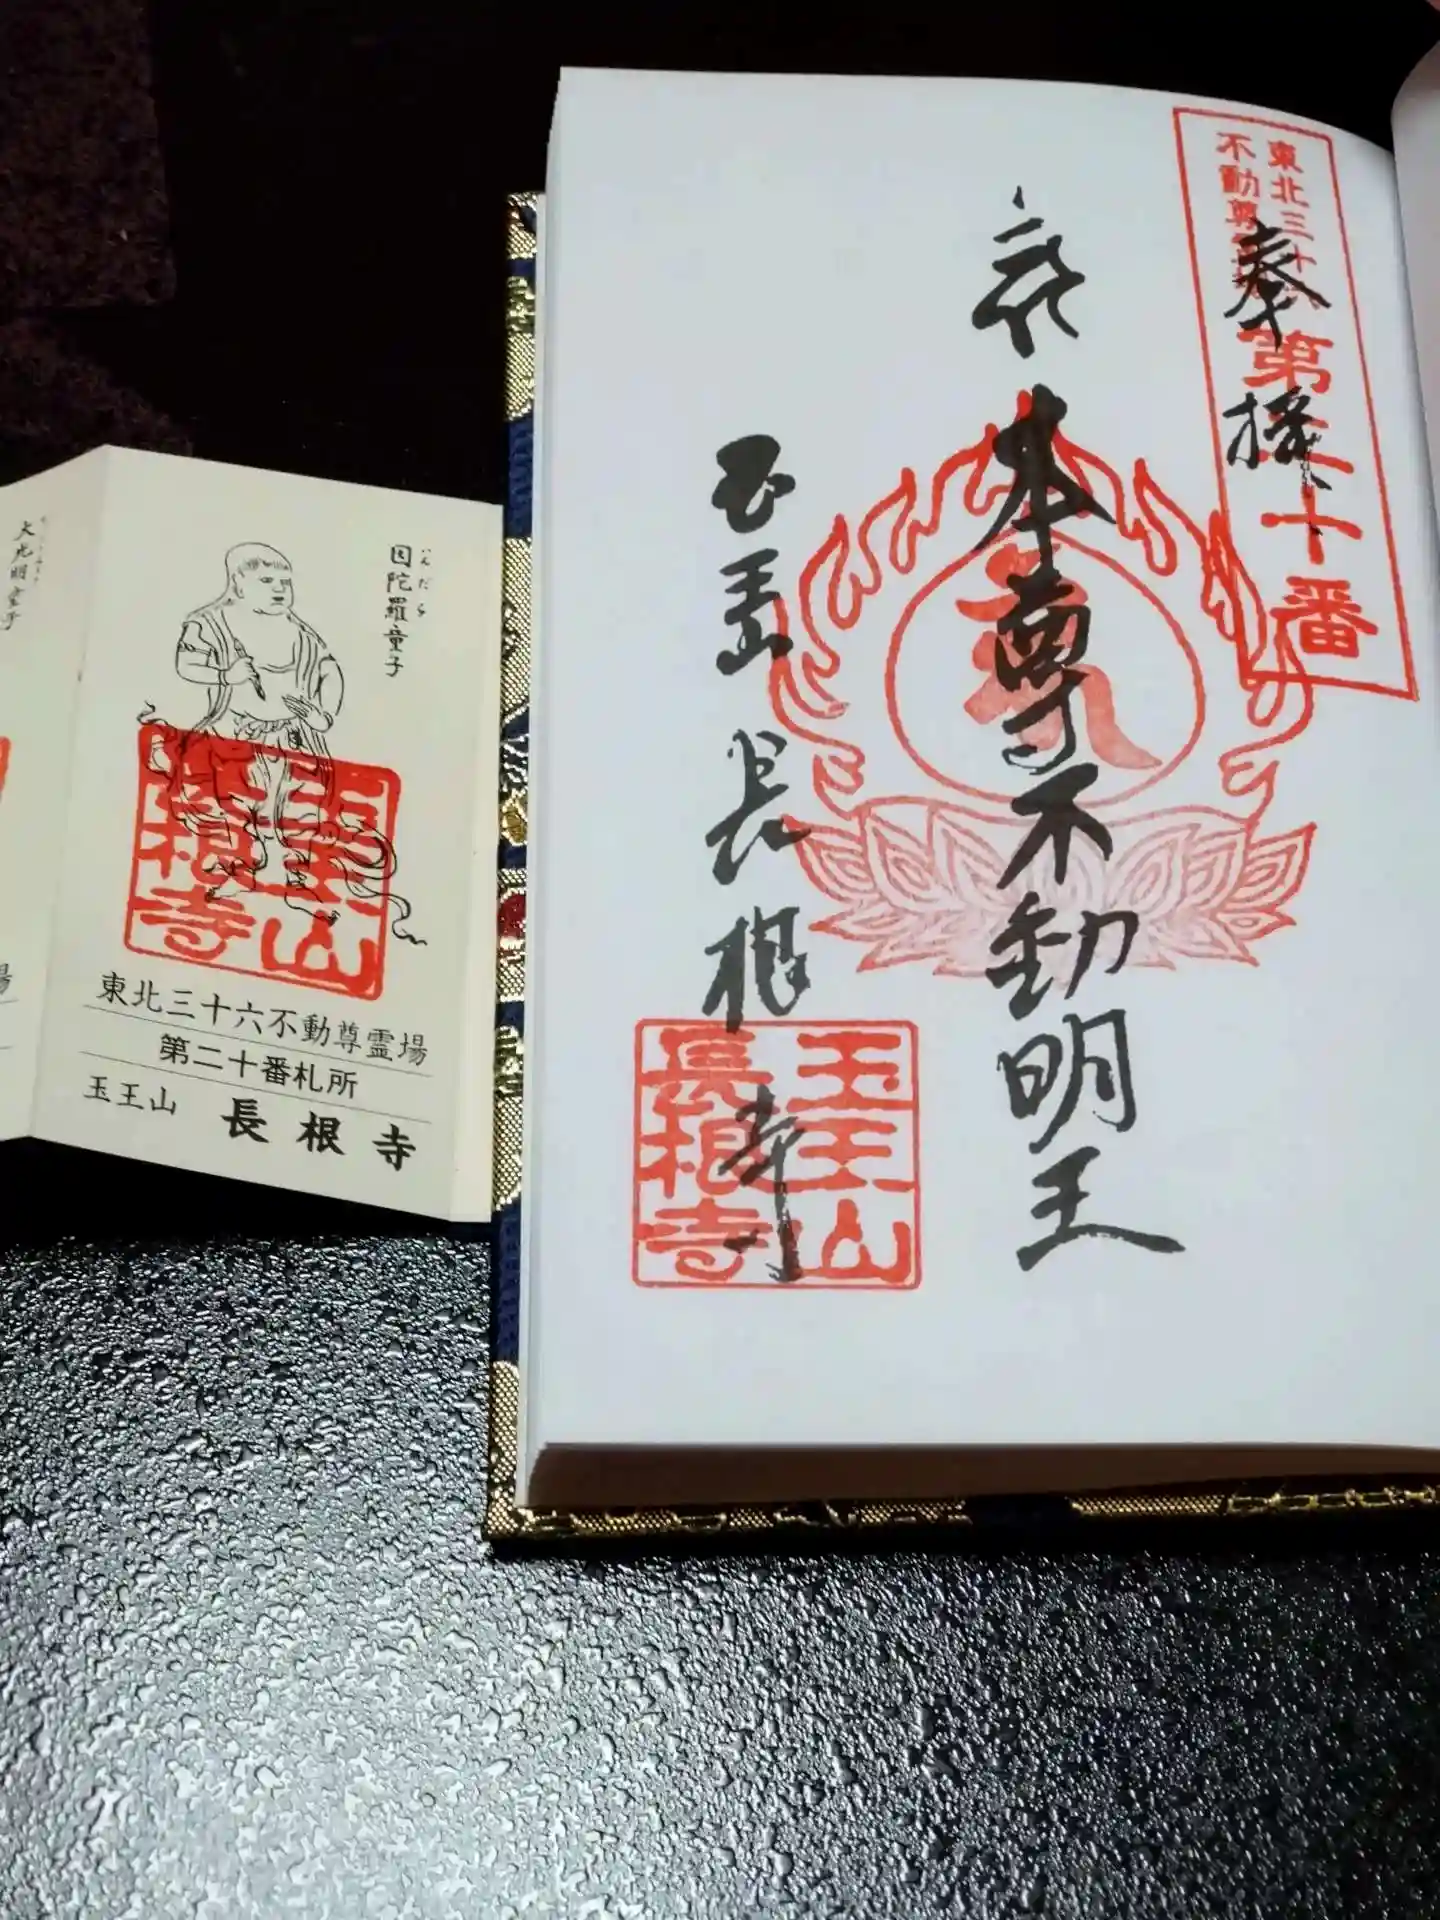 東北三十六
不動尊霊場
第二十番
奉拝
本尊不動明王
玉王山 長根寺
玉王山
長根寺
いんだら
因陀羅童子
玉王山
長根寺
東北三十六不動尊霊場
第二十番札所
玉王山 長根寺
大光明童子
場